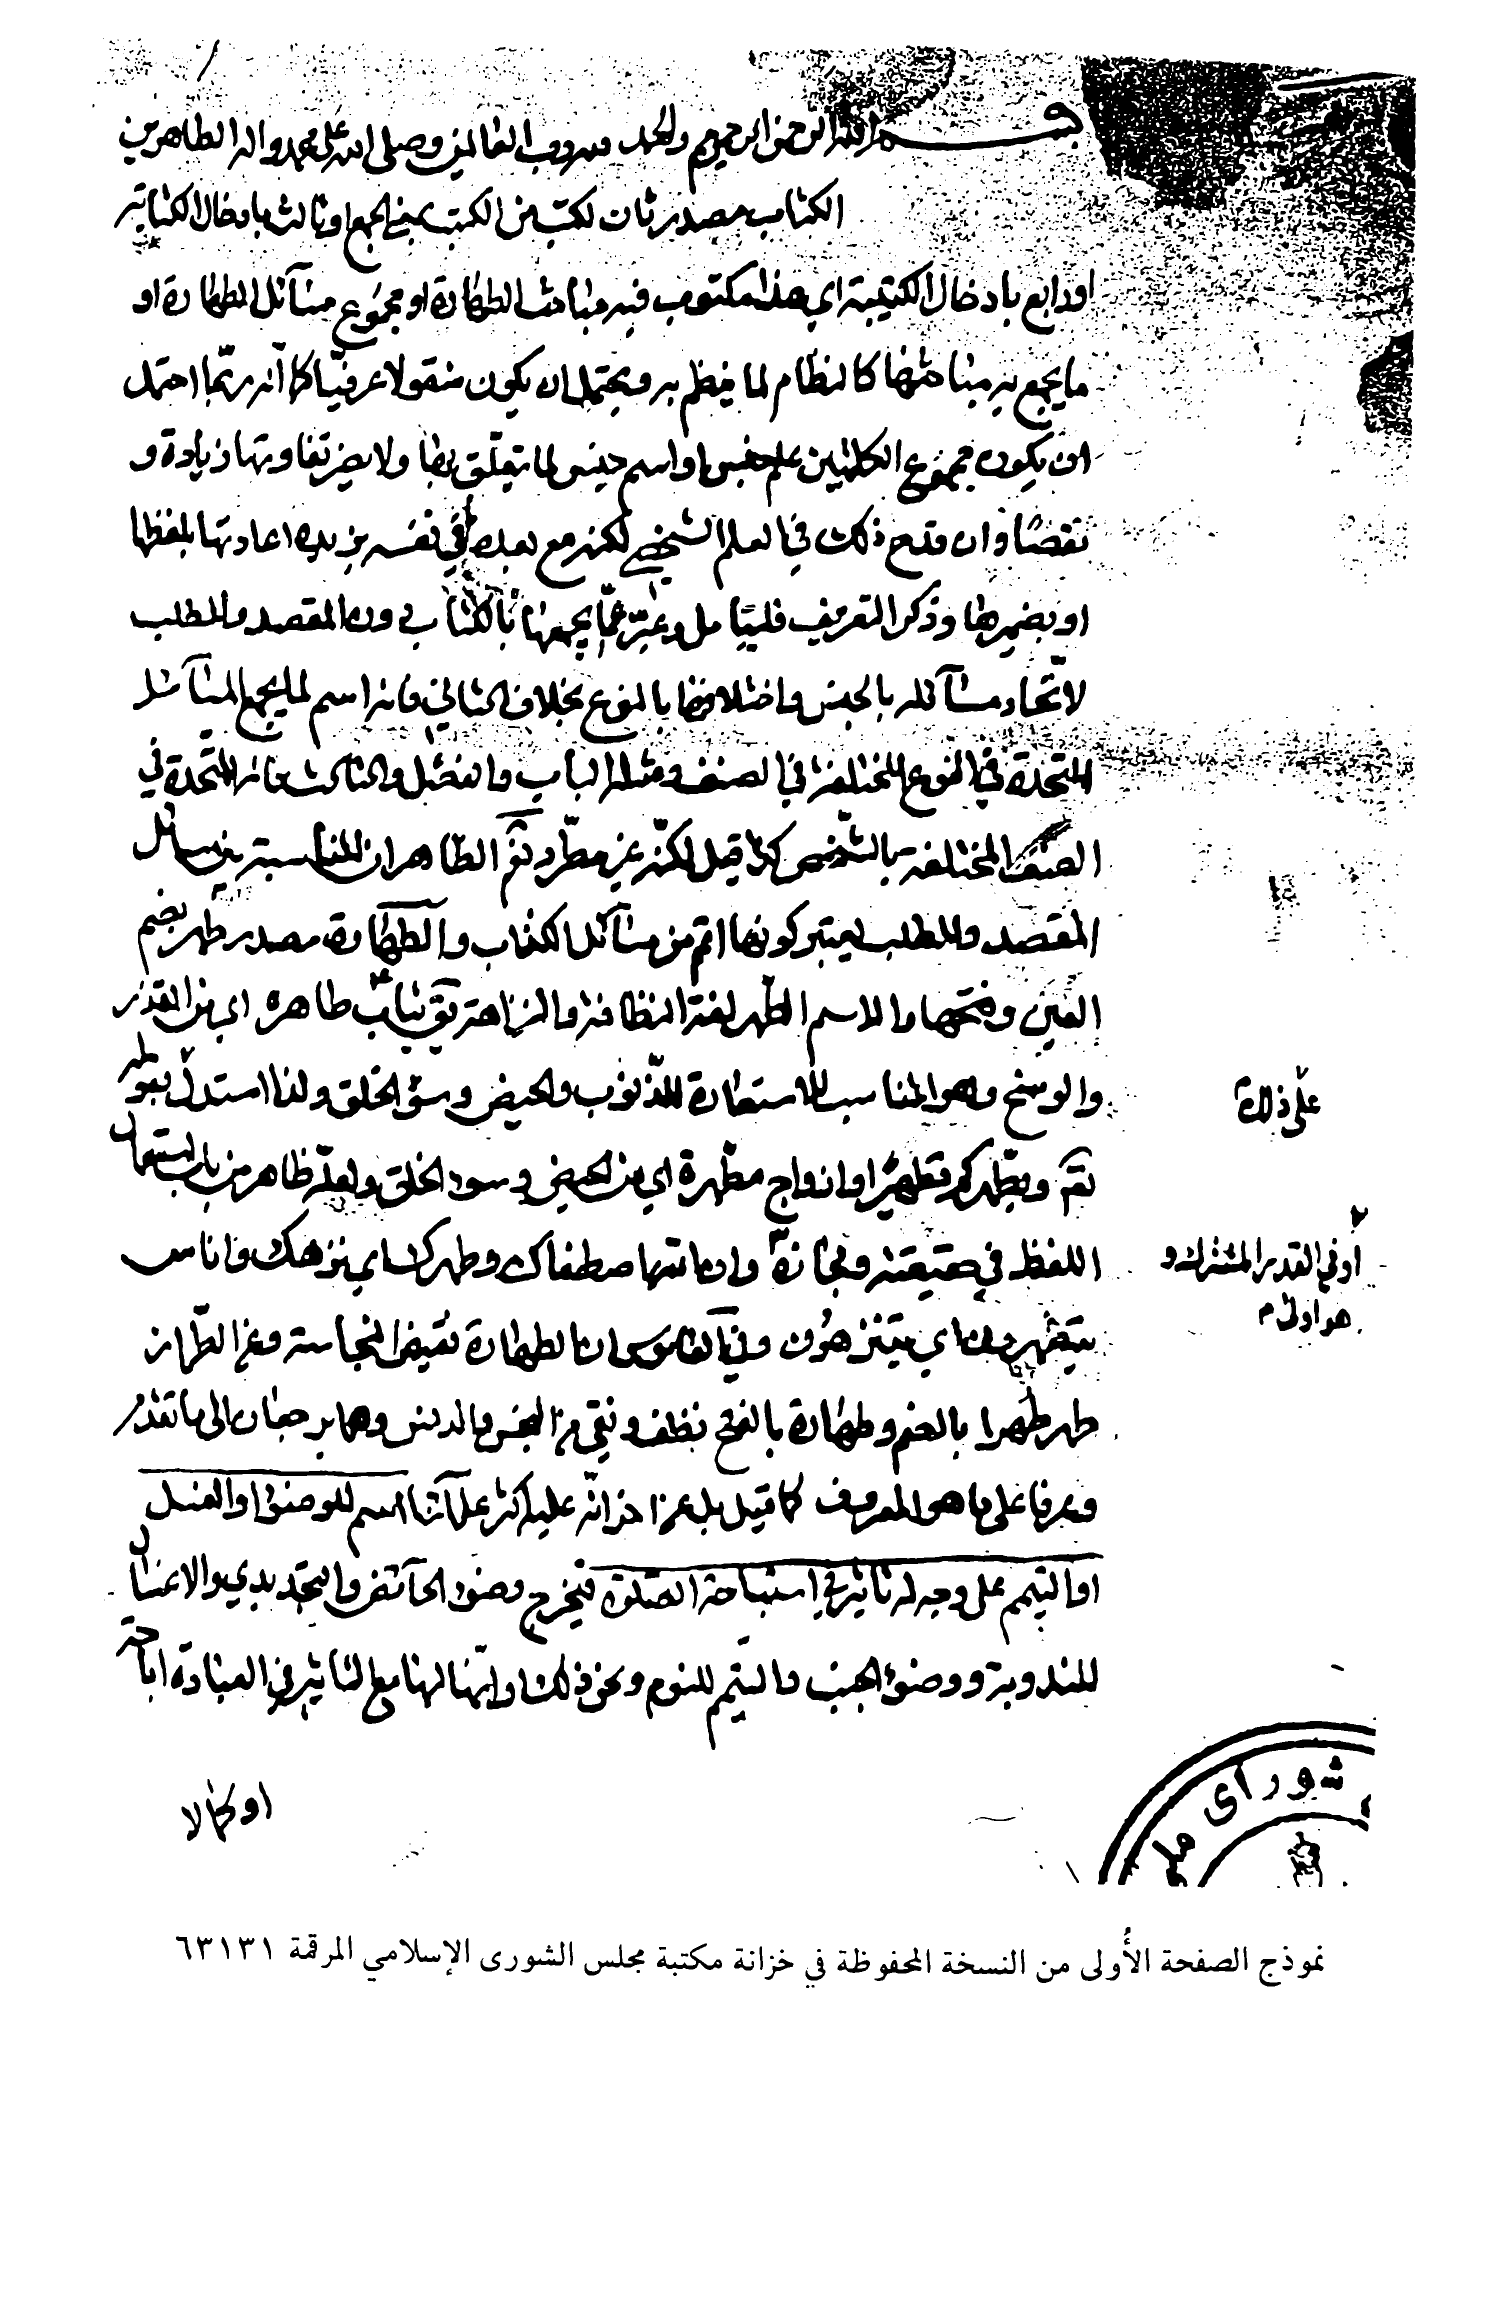 بسم الله الرحمن الرحيم والحمد لله رب العالمين وصلى الله على محمد واله الطاهرين
الكتاب مصدر ثان لكتب من الكتب بمعنى الجمع او ثالث بادخال الكتابة
او رابع بادخال الكتيبة اي هذا مكتوب فيه مباحث الطهارة او مجموع مسآئل الطهارة او
ما يجمع به مباحثها كالنظام لما ينظم به ويحتمل ان يكون منقولا عرفيا كما انه ربما احتمل
ان يكون مجموع الكلمتين علم جنس او اسم جنس لما يتعلق بها ولا يضر تفاوتها زيادة و
نقصا وان قدح ذلك في العلم الشخصي لكنه مع بعده في نفسه يزيده اعادتها بلفظها
او بضميرها وذكر التعريف فليتامل وعبر عما يجمعها بالكتاب دون المقصد والمطلب
لاتحاد مسآئله بالجنس واختلافها بالنوع بخلاف الثاني فانه اسم لما يجمع المسآئل
المتحدة في النوع المختلفة في الصنف ومثله الباب والفصل والثالث فانه للمتحدة في
الصنف المختلفة بالشخص كذا قيل لكنه غير مطرد نعم الظاهر ان المناسبة بين مسائل
المقصد والمطلب يعتبر كونها اتم من مسآئل الكتاب والطهارة مصدر طهر بضم
العين وفتحها والاسم الطهر لغة النظافة والنزاهة يق ثياب طاهرة اي من القذر
والوسخ وهو المناسب للاستعارة للذنوب والحيض وسوء الخلق ولذا استدل بقوله
على ذلك
تعم ويطهركم تطهيرا وازواج مطهرة اي من الحيض وسوء الخلق ولعله ظاهر من باب استعمال
اللفظ في حقيقته ومجازه وان الله اصطفاك وطهرك اي نزهك واناس
أو في القدر المشترك و
هو اولى م
يتطهرون اي يتنزهون وفي القاموس ان الطهارة نقيض النجاسة وعن الطراز
طهر طهرا بالضم وطهارة بالفتح نظف ونقي من النجس والدنس وهما يرجعان الى ما تقدم
وعرفا على ما هو المعروف كما قيل بل عن اخر انه عليه اكثر علمآئنا اسم للوضوء او الغسل
او التيمم على وجه له تاثير في استباحة الصلوة فيخرج وضوء الحآئض والتجديدي والاغسال
المندوبة ووضوء الجنب والتيمم للنوم ونحو ذلك
او كمالا
شوراى
نموذج الصفحة الأُولى من النسخة المحفوظة في خزانة مكتبة مجلس الشورى الإسلامي المرقمة ٦٣١٣١